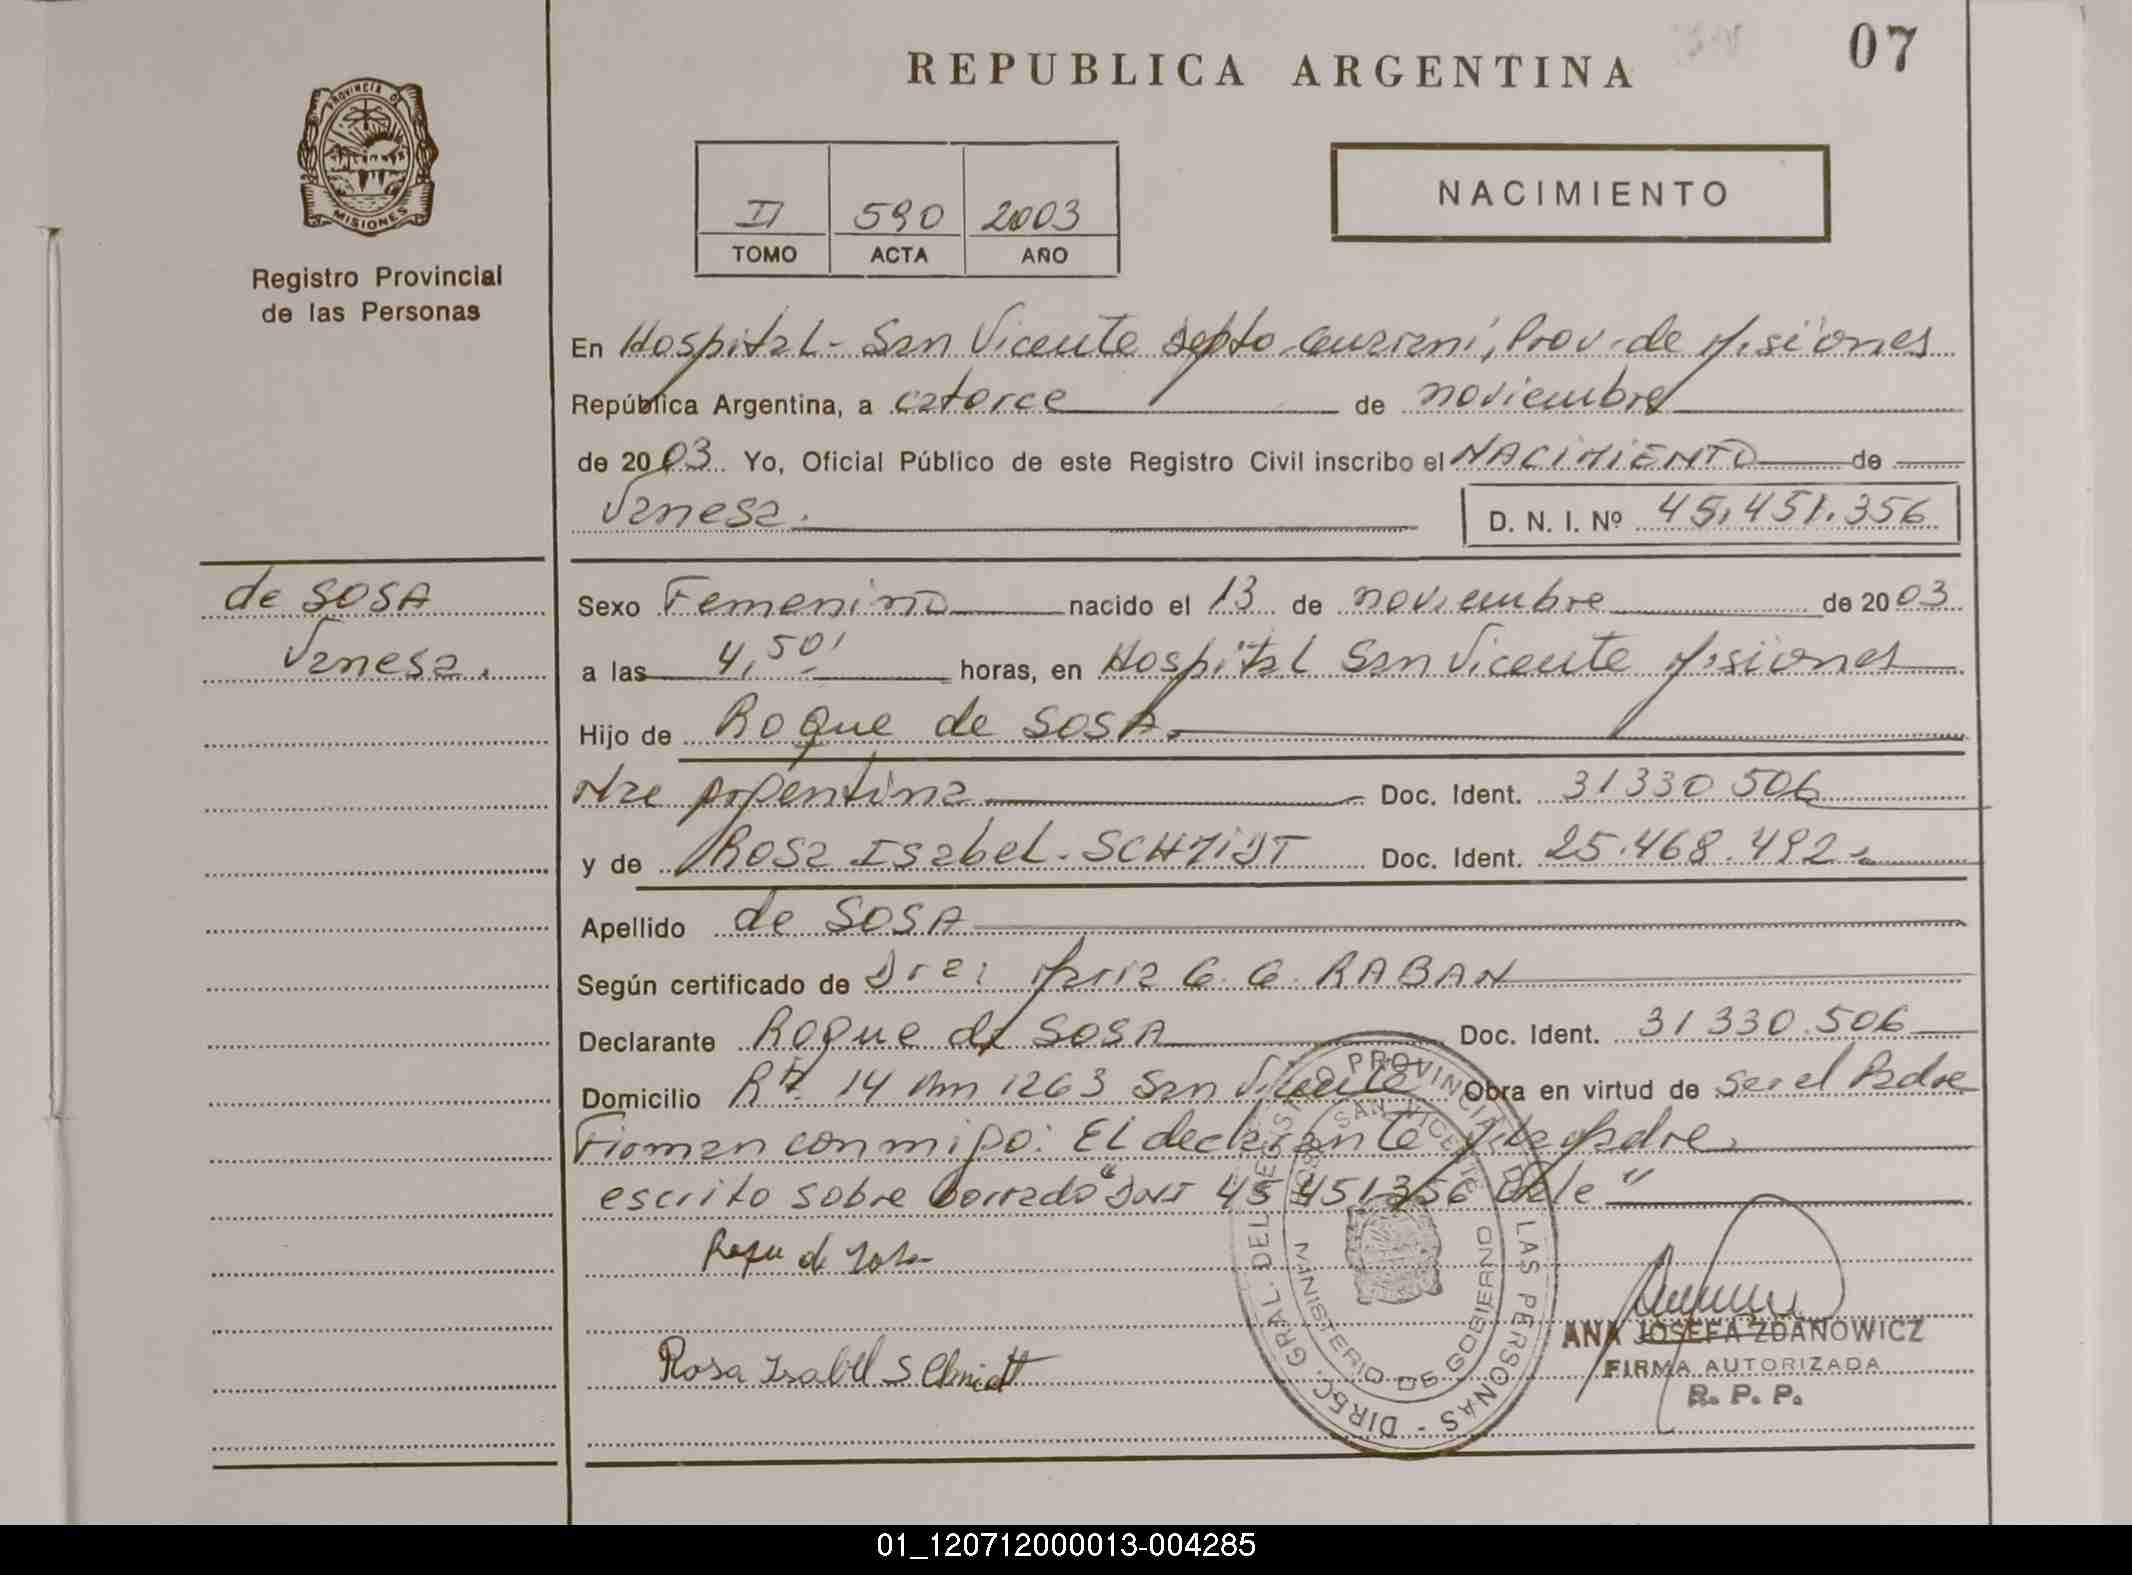 07
REPUBLICA ARGENTINA
PROVINCIA DE
MISIONES
Registro Provincial
de las Personas
II 590 2003
TOMO ACTA AÑO
NACIMIENTO
En Hospital - San Vicente Depto Guaraní, Prov. de Misiones
República Argentina, a catorce de noviembre
de 2003. Yo, Oficial Público de este Registro Civil inscribo el NACIMIENTO de
Vanesa.
D. N. I. Nº 45.451.356
de SOSA
Vanesa.
Sexo Femenino nacido el 13 de noviembre de 2003
a las 4,50' horas, en Hospital San Vicente Misiones
Hijo de Roque de SOSA.
Nac Argentina Doc. Ident. 31330 506
y de Rosa Isabel - SCHMIDT Doc. Ident. 25.468.492
Apellido de SOSA
Según certificado de Dra: María G. G. RABAN
Declarante Roque de SOSA Doc. Ident. 31330.506
Domicilio Rta 14 Km 1263 San Vicente Obra en virtud de ser el Padre
Firman conmigo: El declarante y la Madre.
escrito sobre borrado "DNI 45 451.356 Vale"
Roque de Sosa
Rosa Isabel SChmidt
DIREC. GRAL. DEL REGISTRO PROVINCIAL DE LAS PERSONAS -
HOSP. SAN VICENTE
MINISTERIO DE GOBIERNO
ANA JOSEFA ZDANOWICZ
FIRMA AUTORIZADA
R. P. P.
01_120712000013-004285